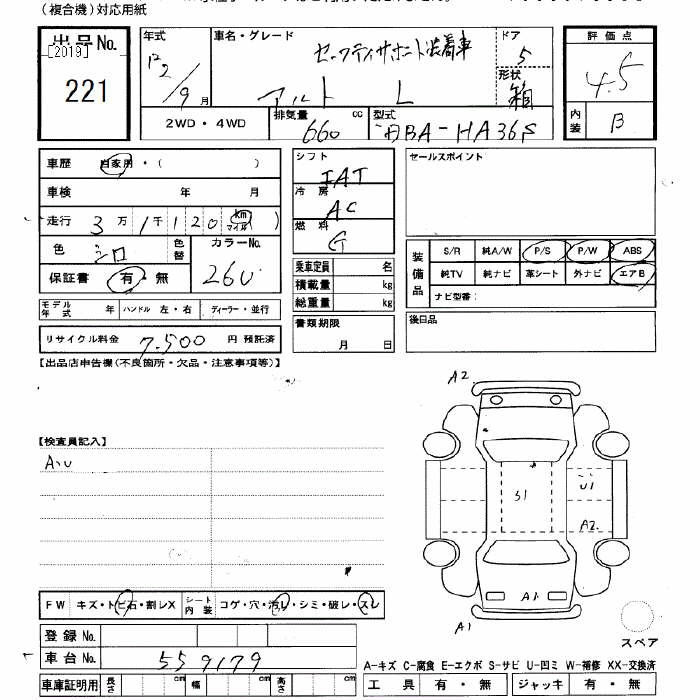 (複合機)対応用紙
出品No.
[2019]
221
年式
車名・グレード
ドア
評価点
セーフティサポート装着車
5
4.5
2/9月
形状
アルト L
箱
内装
B
2WD・4WD
排気量 cc
660
型式
DBA-HA36S
車歴 自家用・( )
シフト
IAT
セールスポイント
車検 年 月
冷房
AC
走行 3万1千120 km マイル( )
燃料
G
色
シロ
色替
カラーNo.
26U
装備品
S/R 純A/W P/S P/W ABS
純TV 純ナビ 革シート 外ナビ エアB
ナビ型番:
保証書 有・無
乗車定員 名
積載量 kg
総重量 kg
モデル年式 年 ハンドル 左・右 ディーラー・並行
書類期限
月 日
後日品
リサイクル料金 7,500 円 預託済
【出品店申告欄(不良箇所・欠品・注意事項等)】
A2
【検査員記入】
A、U
U1
S1
A2
A1
A1
FW キズ・トビ石・割レX シート内装 コゲ・穴・汚レ・シミ・破レ・スレ
スペア
登録No.
車台No. 559179
A-キズ C-腐食 E-エクボ S-サビ U-凹ミ W-補修 XX-交換済
車庫証明用 長さ cm 幅 cm 高さ cm
工具 有・無 ジャッキ 有・無